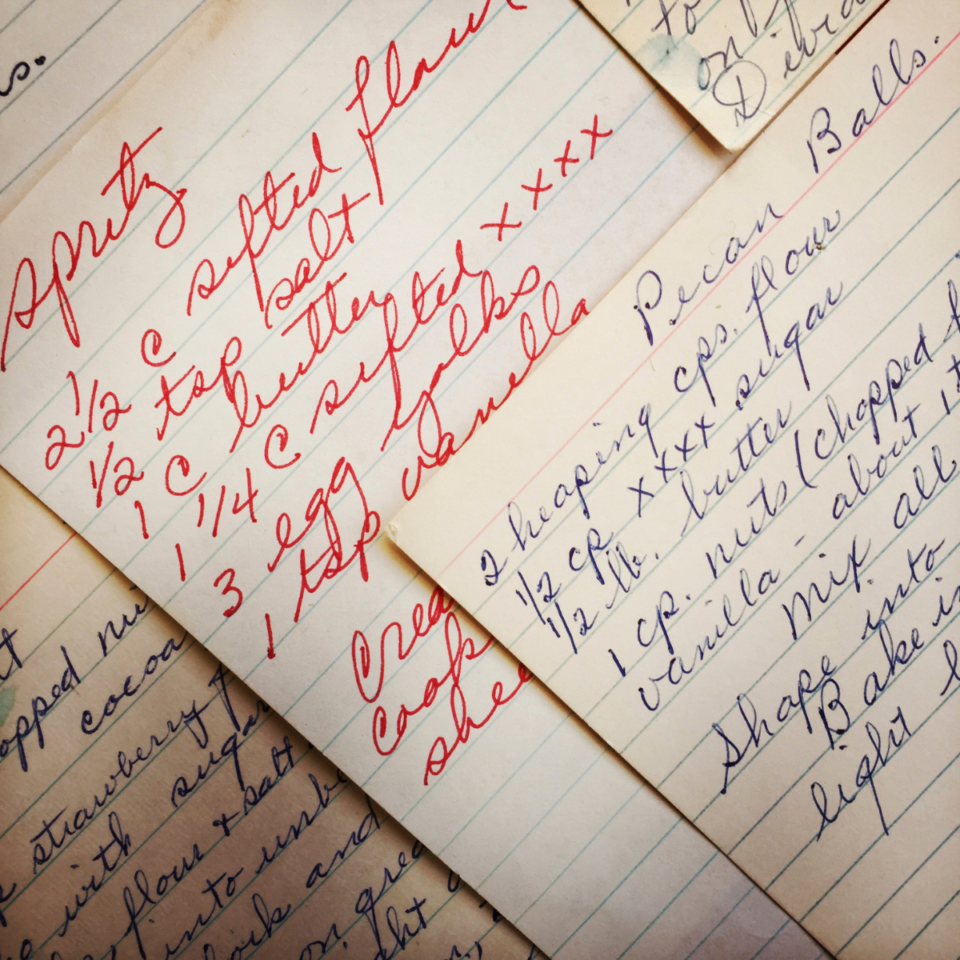 s.
spritz
2 1/2 c sifted flour
1/2 tsp salt
1 c butter
1 1/4 c sifted xxxx
3 egg yolks
1 tsp vanilla
Crea
cook
shee
to
on
Divi
Pecan Balls.
2 heaping cps. flour
1/2 cp xxxx sugar
1/2 lb. butter
1 cp. nuts (chopped f
vanilla - about 1 t
mix all
Shape into
Bake in
light
opped nu
cocoa
strawberry
with sugar
flour & salt
into unbe
and
on grea
ght